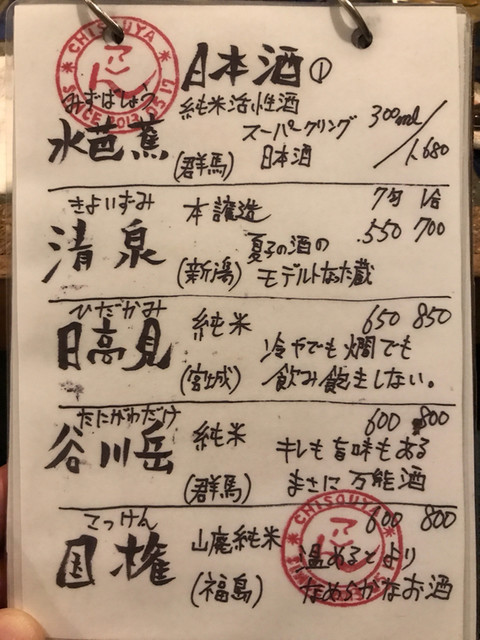 CHISOUYA
SINCE 2013.05.17
日本酒①
みずばしょう
水芭蕉
純米活性酒
スーパークリング
日本酒
300ml/1.680
(群馬)
きよいずみ
清泉
本醸造
7勺 1合
550 700
夏子の酒の
(新潟) モデルとなった蔵
ひだかみ
日高見
純米
650 850
冷やでも燗でも
(宮城) 飲み飽きしない。
たにがわだけ
谷川岳
純米
600 800
キレも旨味もある
(群馬) まさに万能酒
てっけん
国権
山廃純米
600 800
温めるとより
(福島) なめらかなお酒
CHISOUYA